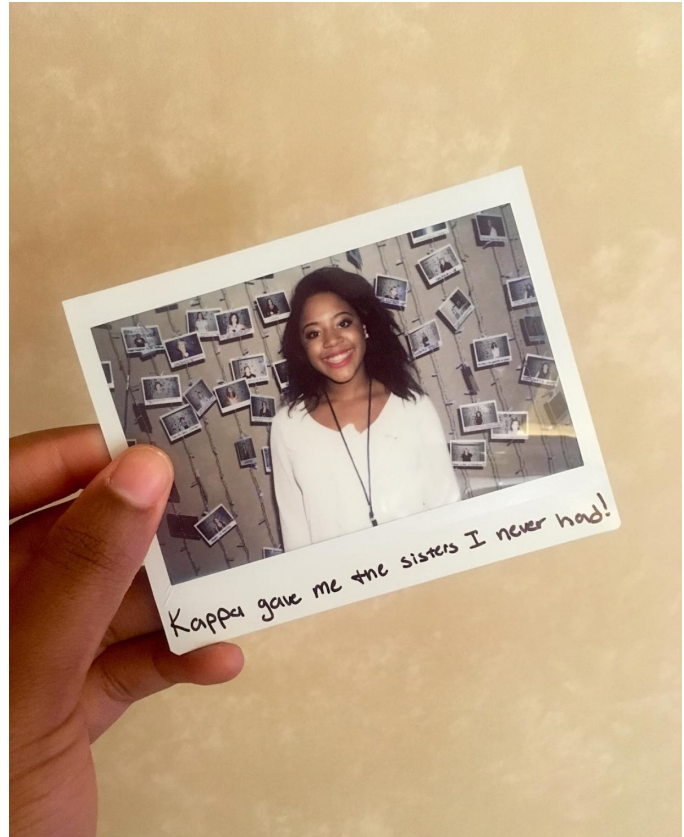 Kappa gave me the sisters I never had!